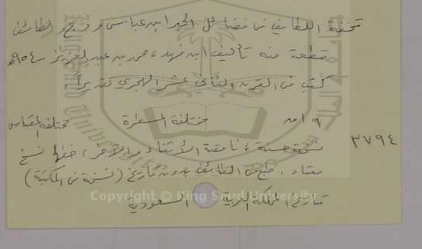 تحفة اللطائف في فضائل الحبر ابن عباس ووج والطائف
قطعة منه تأليف ابن فهد، محمد بن عبد العزيز - ٩٥٤هـ
كتبت في القرن الثاني عشر الهجري تقديرا
١٦ ق مختلفة المسطرة مختلفة المقاس
٢٧٩٤
نسخة حسنة، ناقصة الأثناء والآخر، خطها نسخ
معتاد. طبع في الطائف بدون تاريخ (نسخة في المكتبة)
تاريخ المملكة العربية السعودية
Copyright © King Saud University